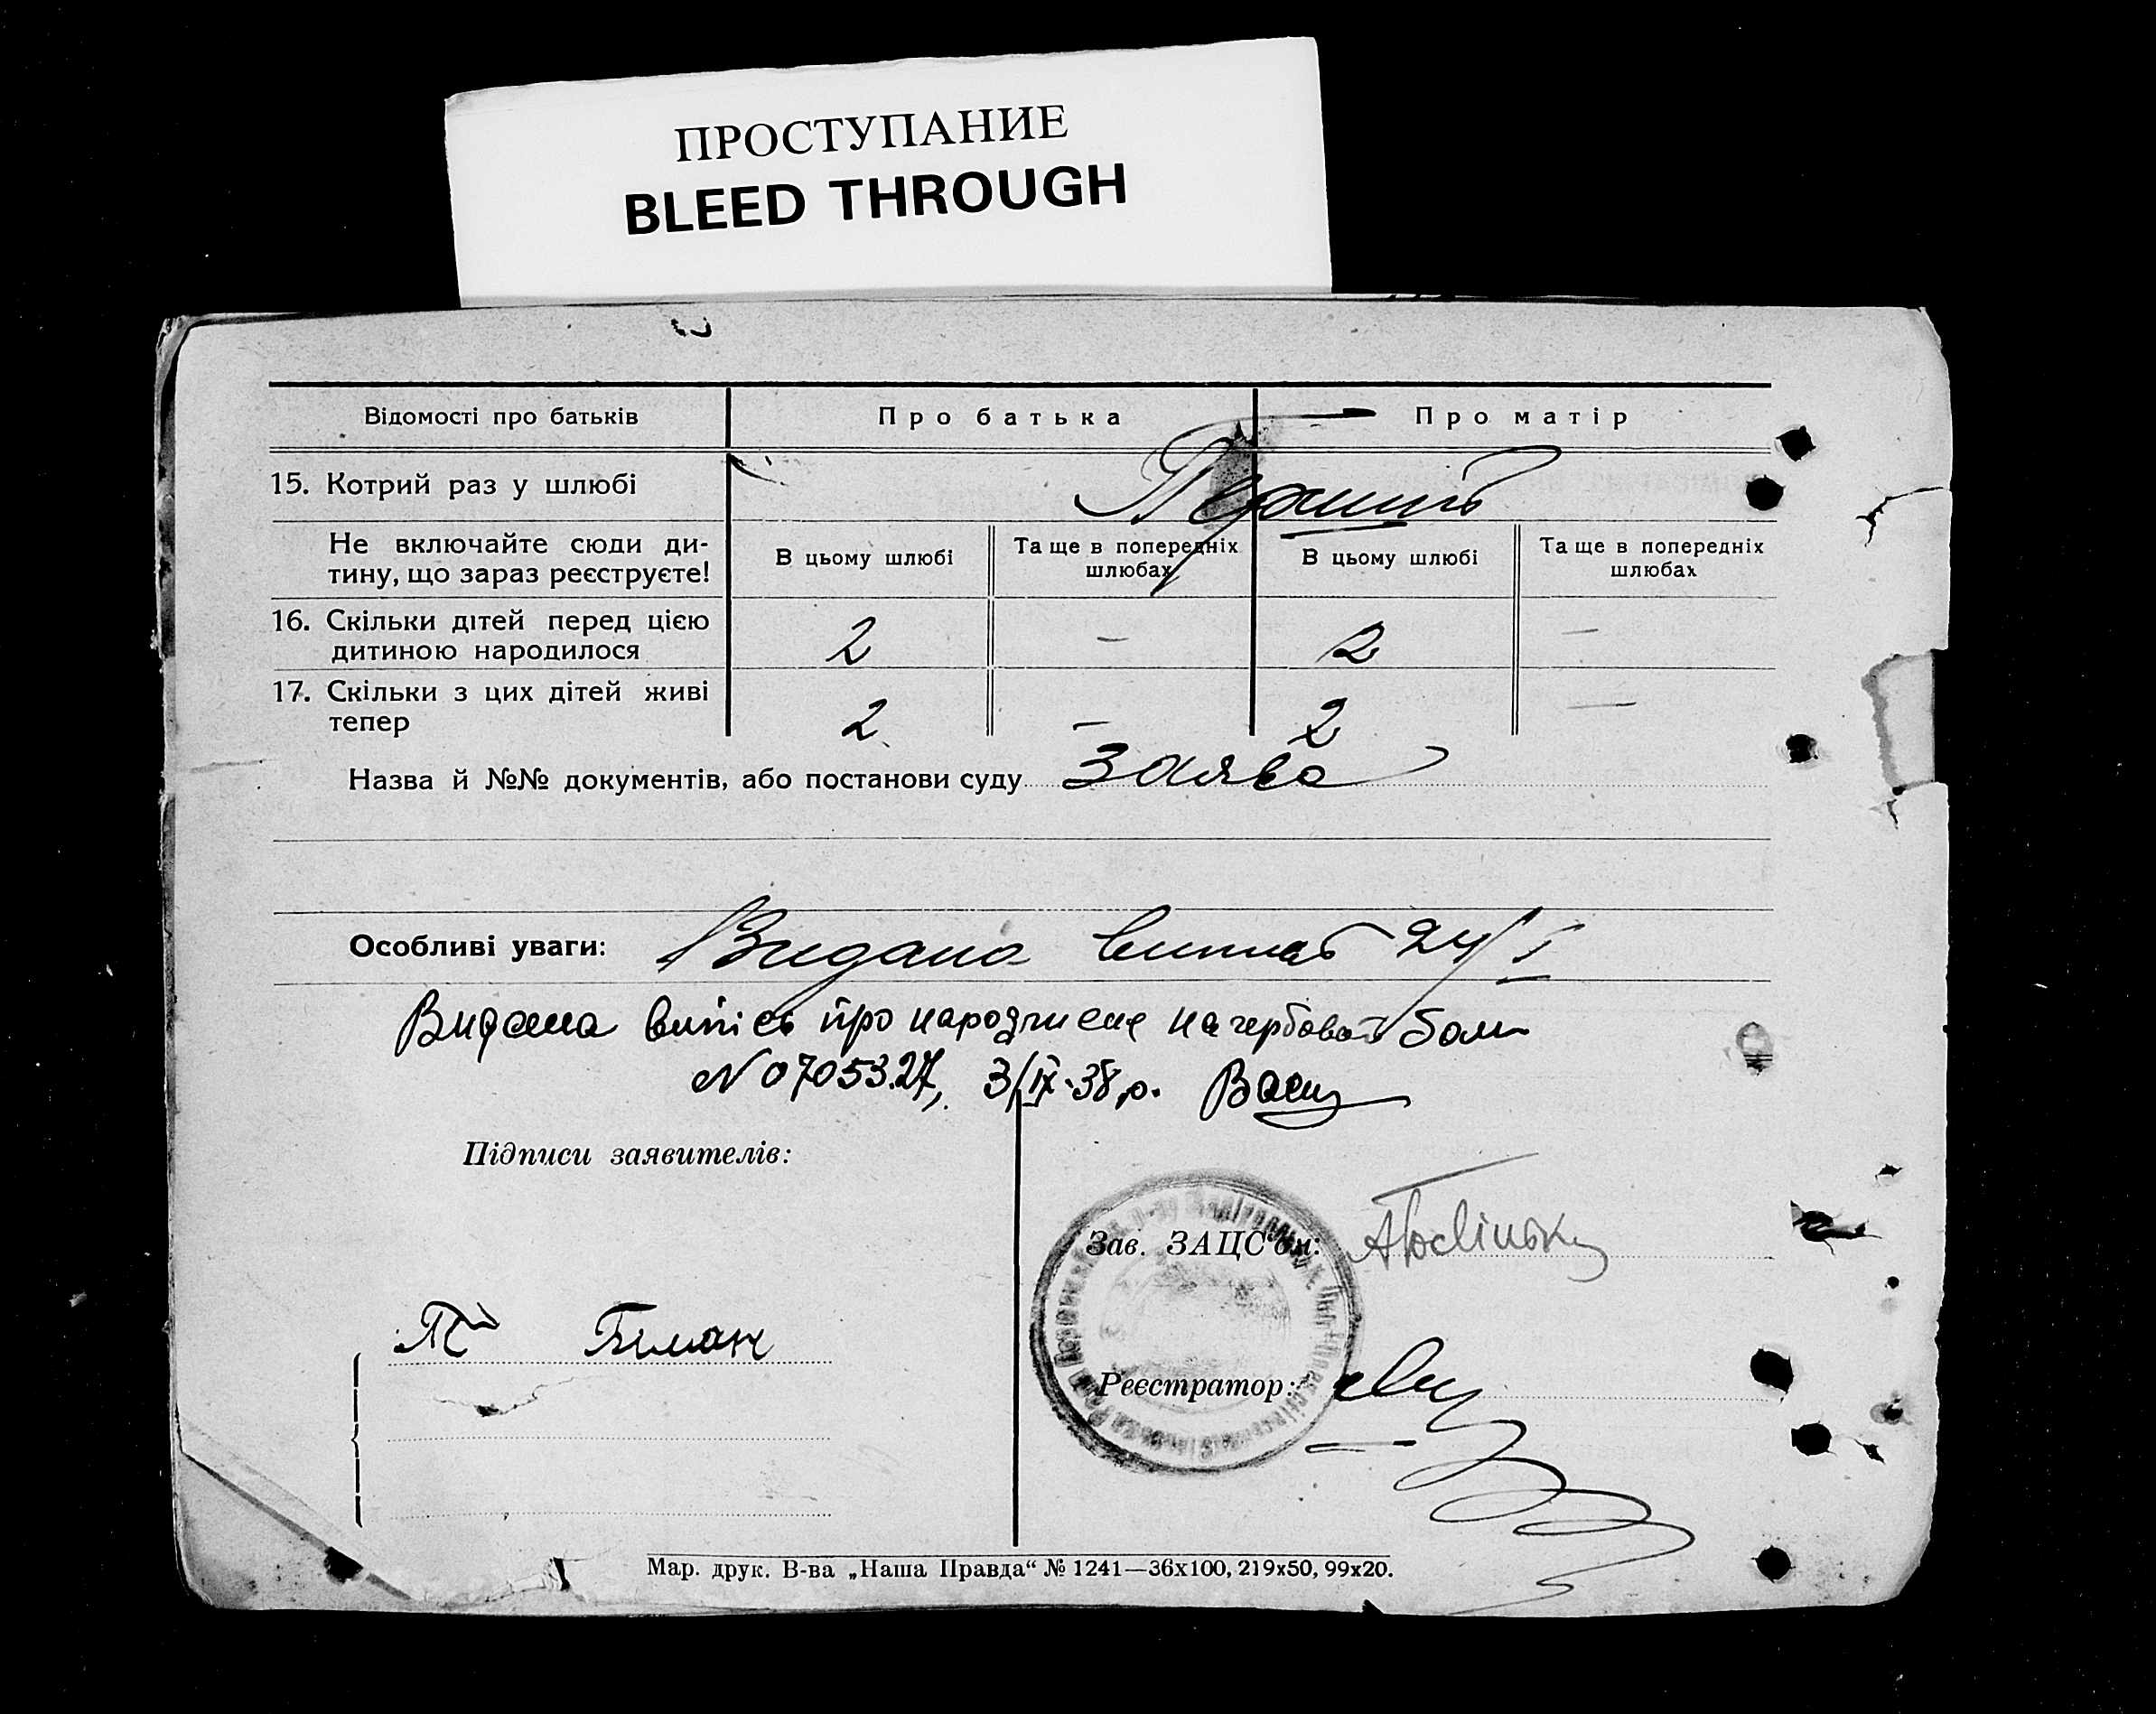 ПРОСТУПАНИЕ
BLEED THROUGH
Відомості про батьків Про батька Про матір
15. Котрий раз у шлюбі
Не включайте сюди ди-
тину, що зараз реєструєте!
В цьому шлюбі Та ще в попередніх шлюбах В цьому шлюбі Та ще в попередніх шлюбах
16. Скільки дітей перед цією
дитиною народилося 2 – 2 –
17. Скільки з цих дітей живі
тепер 2 – 2 –
Назва й №№ документів, або постанови суду Заява
Особливі уваги: Видано 24/I
Видана випісь про народження на гербовой
N 0705327, 3/IX-38 р.
Підписи заявителів:
Зав. ЗАЦС'ом:
Біман
Реєстратор:
Мар. друк. В-ва „Наша Правда“ № 1241—36х100, 219х50, 99х20.